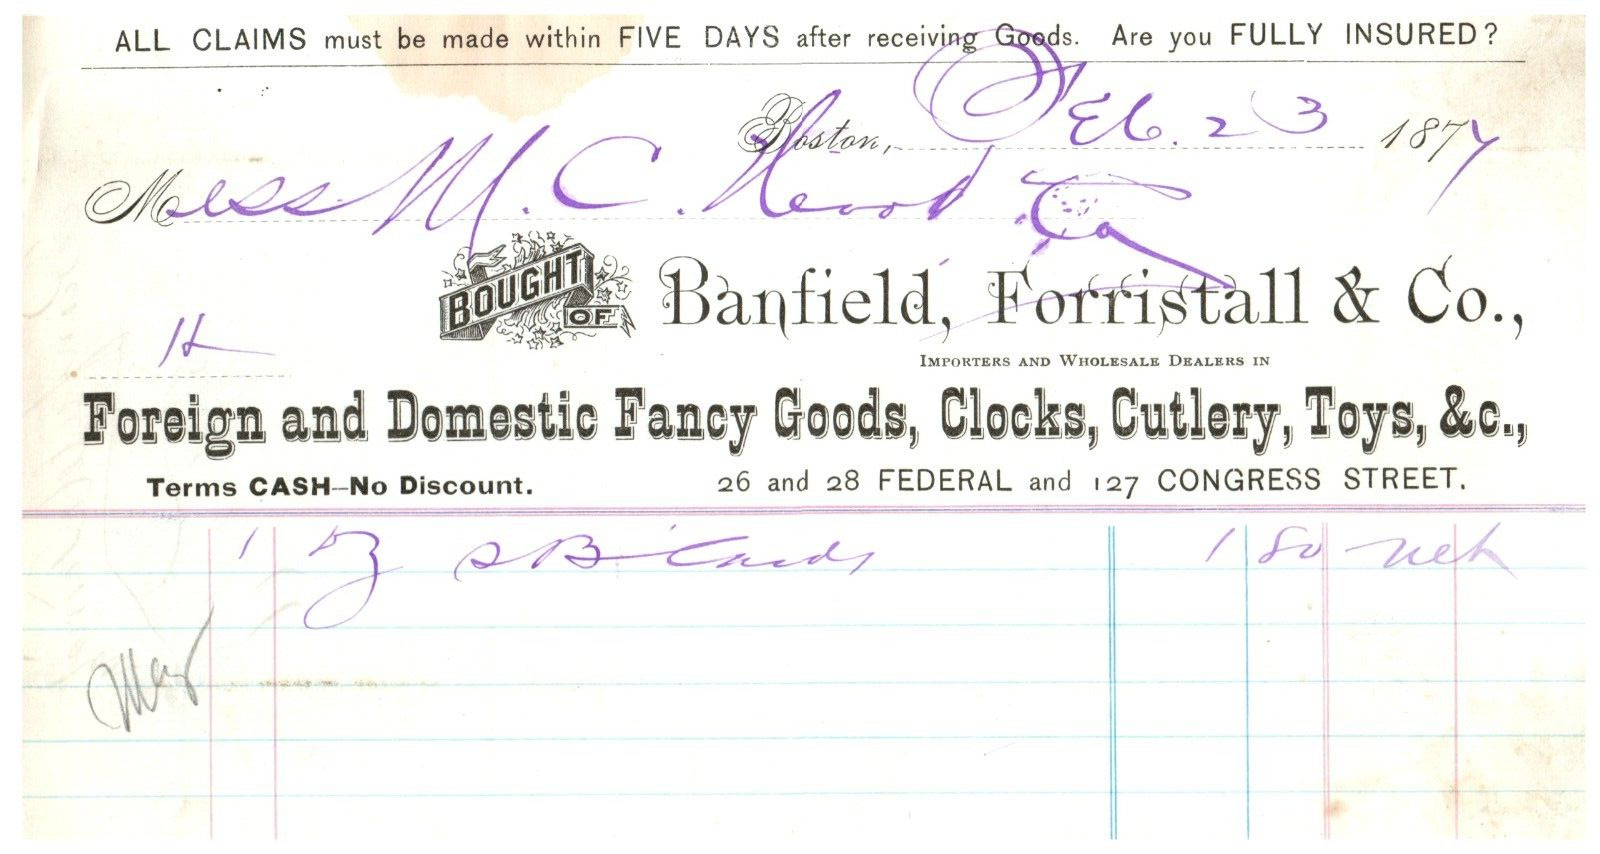 ALL CLAIMS must be made within FIVE DAYS after receiving Goods. Are you FULLY INSURED?
Boston, Feb. 23 1877
Mess M. C. & Co
BOUGHT OF Banfield, Forristall & Co.,
IMPORTERS AND WHOLESALE DEALERS IN
Foreign and Domestic Fancy Goods, Clocks, Cutlery, Toys, &c.,
Terms CASH–No Discount. 26 and 28 FEDERAL and 127 CONGRESS STREET.
1 Dz S B Cards 1 80 net
May